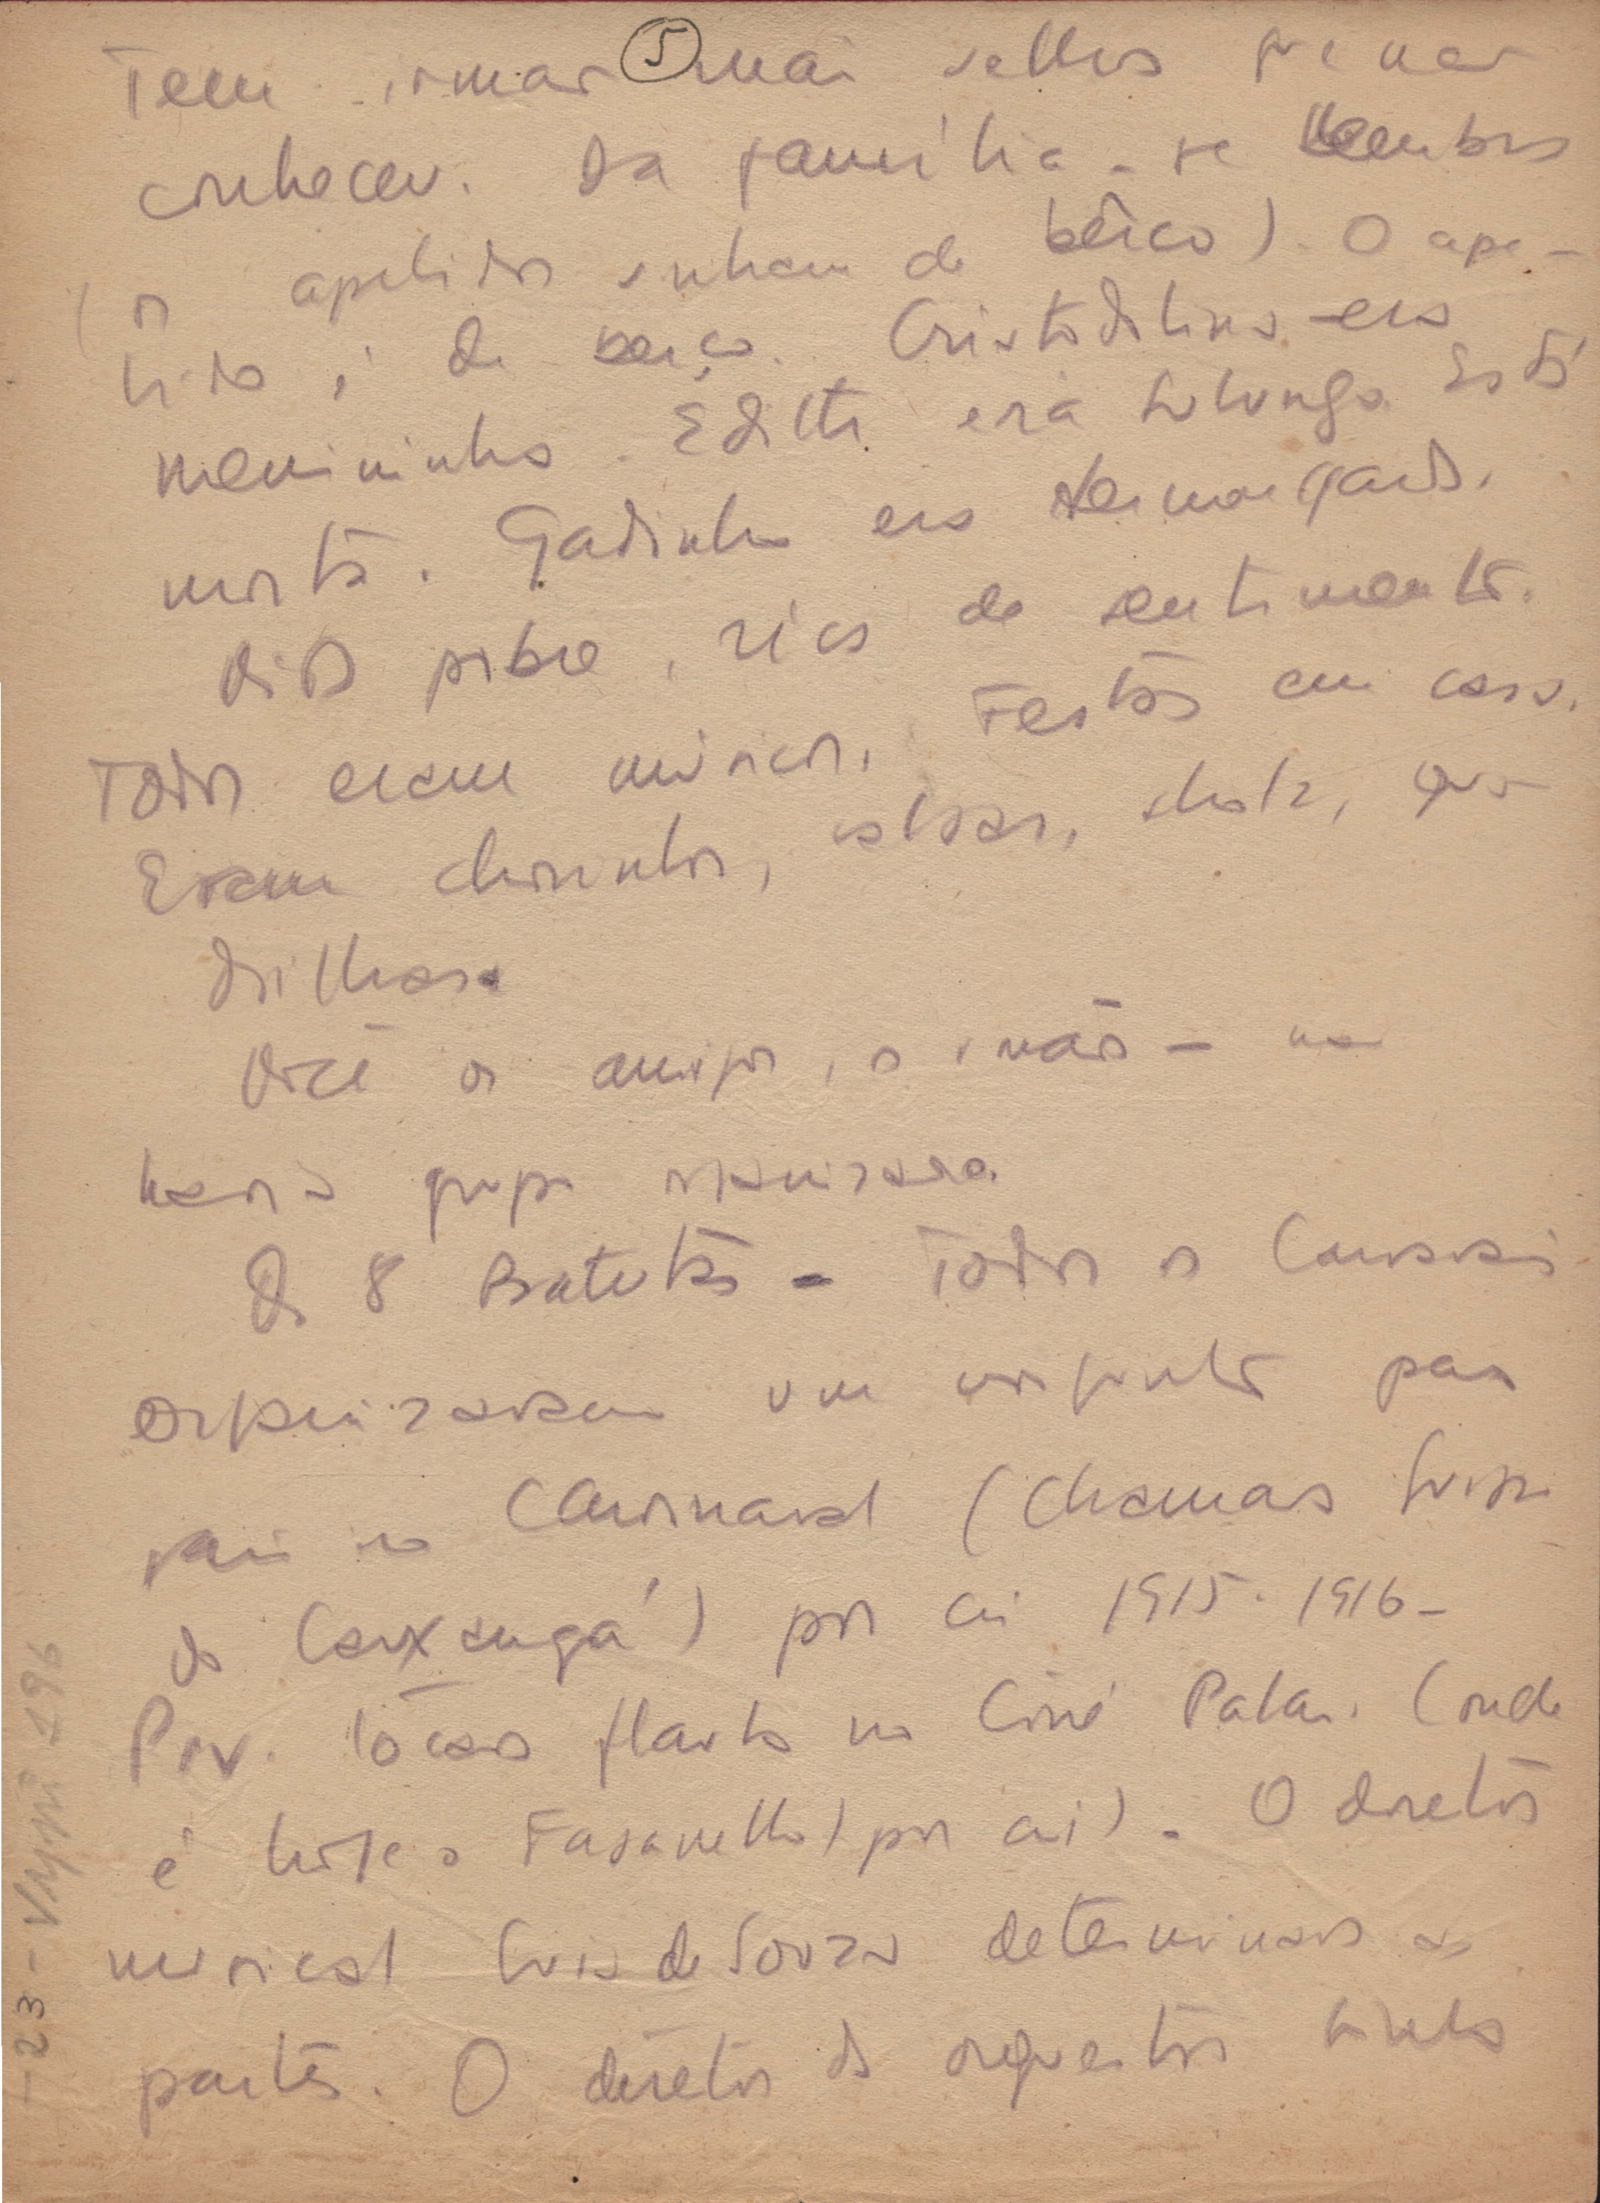 5
Tem irmãos mais velhos que não
conheceu. Da família - se lembra
(os apelidos vinham de berço). O ape-
lido é de berço. Cristodolino era
Menininho. Édith era Tutunga. Está
morta. Gadinha era Hermengarda.
Vida pobre, rica de sentimento.
Todos eram músicos. Festas em casa.
Eram chorinhos, valsas, schotz, qua-
drilhas.
Você os amigos, os irmãos - não
havia grupo organizado.
Os 8 Batutas - Todos os Carnavais
organizavam um conjunto para
sair no Carnaval (chamava Grupo
do Caxangá) por aí 1915-1916 -
Pix. tocava flauta no Cine Palais (onde
é hoje o Fasanello) por aí). O diretor
musical Luis de Souza determinava as
partes. O diretor da orquestra tinha
23 - 196